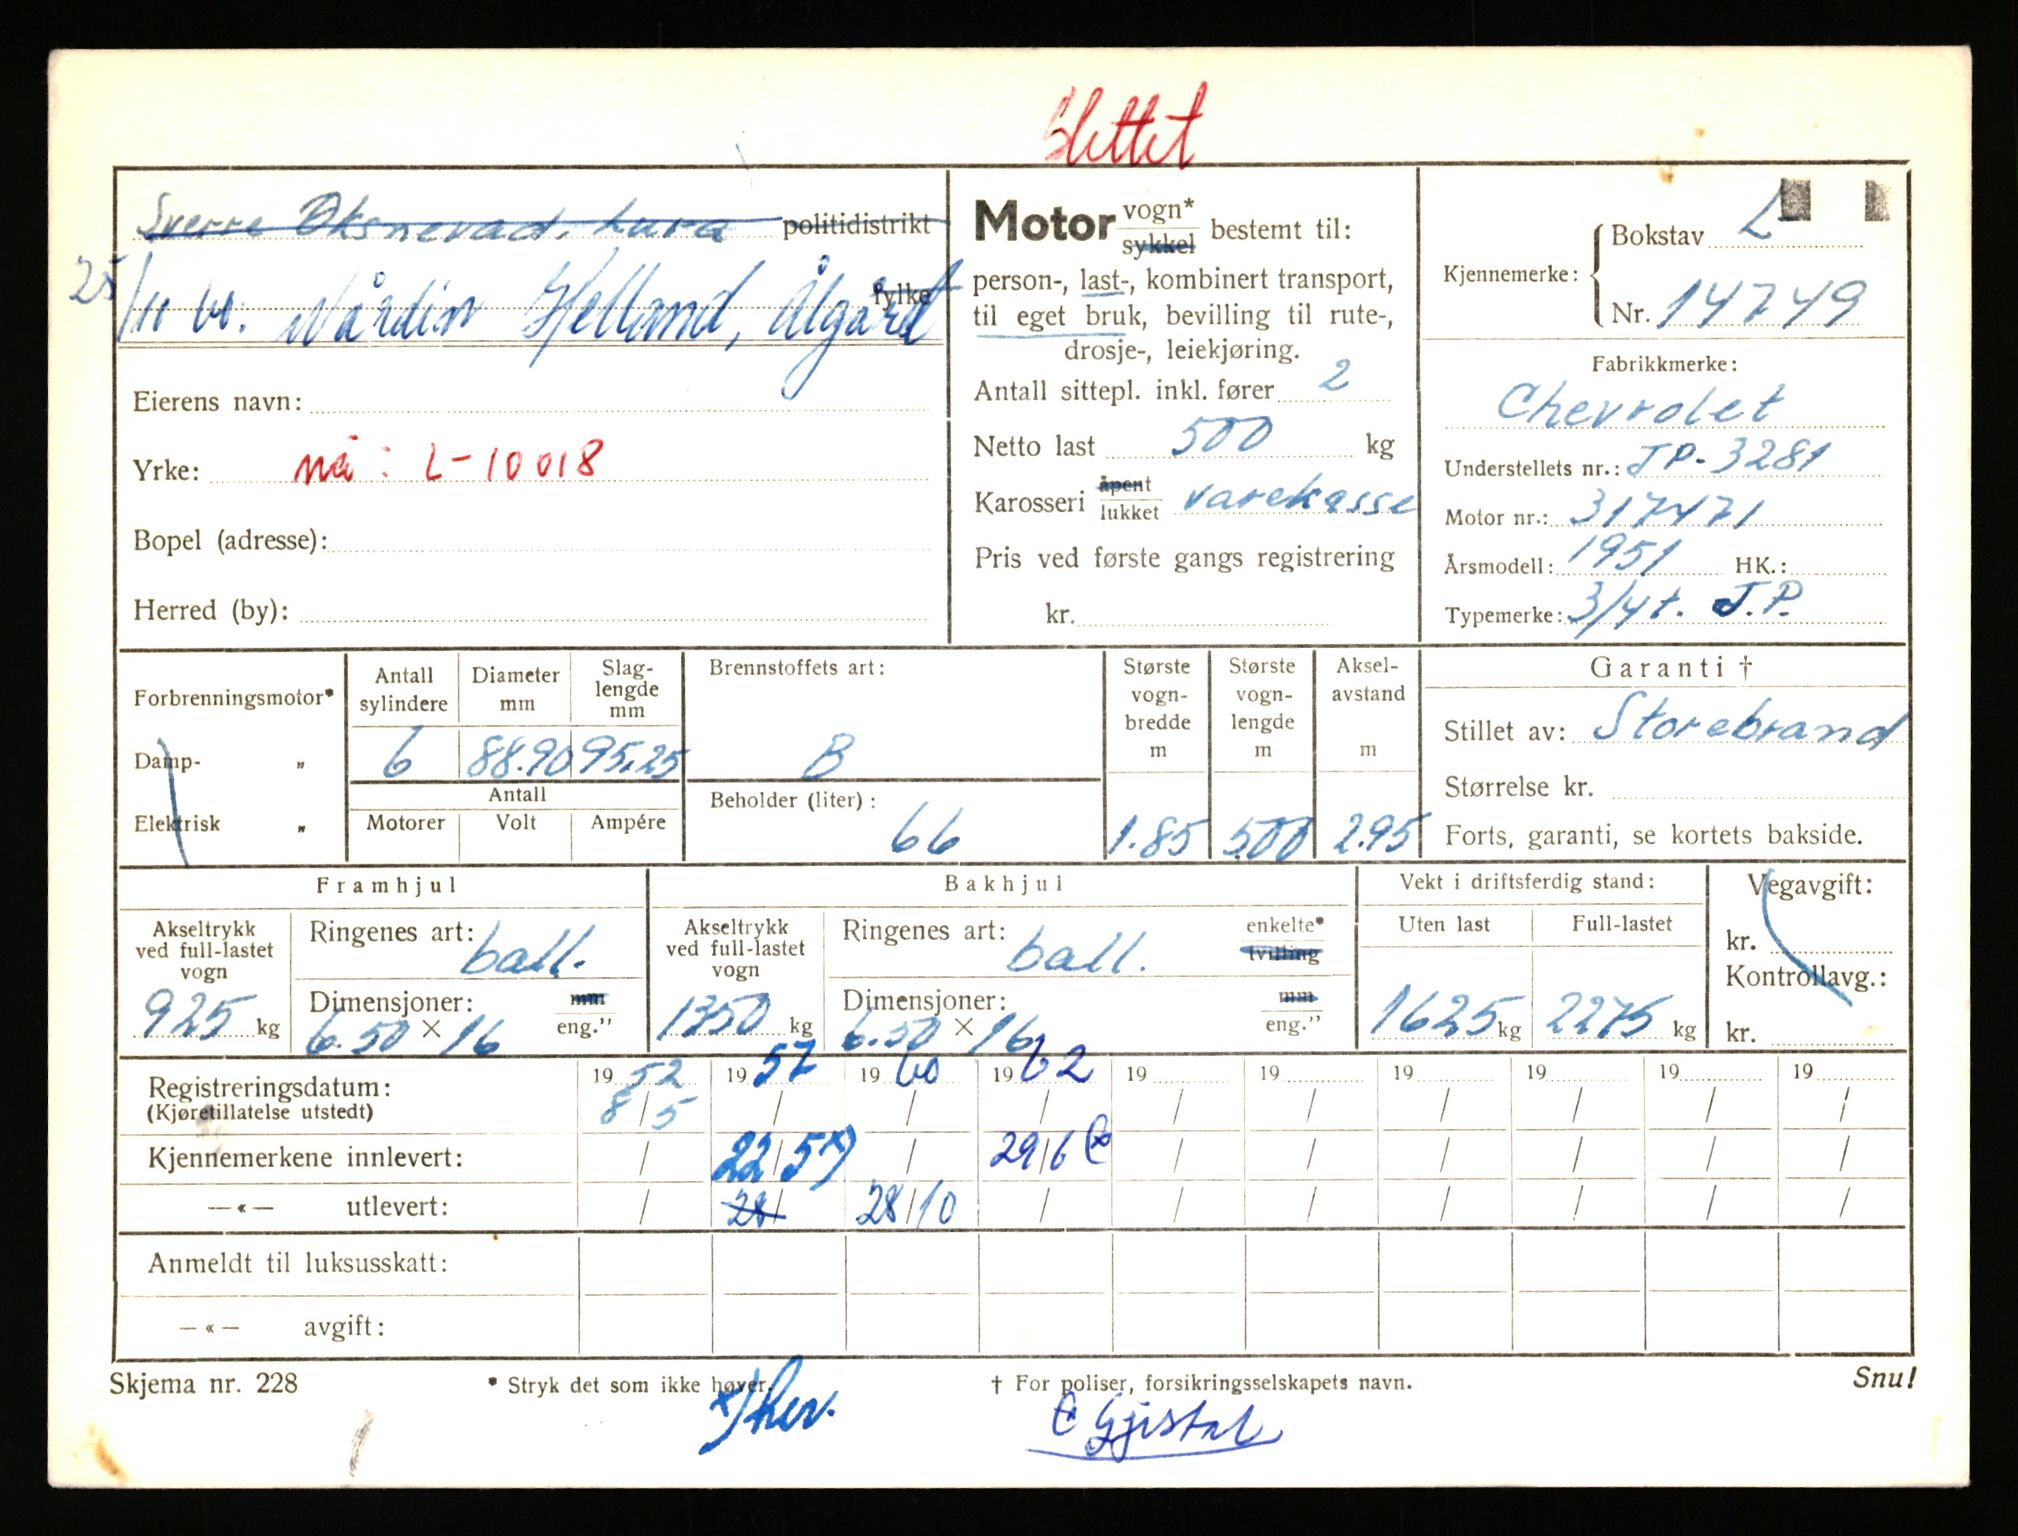 Slettet
Sverre Øksnevad, Lura politidistrikt
25/11 60. Nårdin Helland, Ålgård fylke
Eierens navn:
Yrke: nå: L-10018
Bopel (adresse):
Herred (by):
Motor vogn* sykkel bestemt til:
person-, last-, kombinert transport,
til eget bruk, bevilling til rute-,
drosje-, leiekjøring.
Antall sittepl. inkl. fører 2
Netto last 500 kg
Karosseri åpent lukket varekasse
Pris ved første gangs registrering
kr.
Kjennemerke: Bokstav L
Nr. 14749
Fabrikkmerke:
Chevrolet
Understellets nr.: JP-3281
Motor nr.: 317471
Årsmodell: 1951 HK.:
Typemerke: 3/4 t. J.P.
Forbrenningsmotor*
Damp- „
Elektrisk „
Antall sylindere 6
Diameter mm 88.90
Slag-lengde mm 95.25
Antall
Motorer Volt Ampére
Brennstoffets art:
B
Beholder (liter):
66
Største vogn-bredde m 1.85
Største vogn-lengde m 5.00
Aksel-avstand m 2.95
Garanti †
Stillet av: Storebrand
Størrelse kr.
Forts, garanti, se kortets bakside.
Framhjul
Akseltrykk ved full-lastet vogn 925 kg
Ringenes art: ball.
Dimensjoner: mm
6.50 × 16 eng.”
Bakhjul
Akseltrykk ved full-lastet vogn 1350 kg
Ringenes art: ball. enkelte* tvilling
Dimensjoner: mm
6.50 × 16 eng.”
Vekt i driftsferdig stand:
Uten last Full-lastet
1625 kg 2275 kg
Vegavgift:
kr.
Kontrollavg.:
kr.
Registreringsdatum: 1952 1957 1960 1962 19 19 19 19 19 19
(Kjøretillatelse utstedt) 8/5 / / / / / / / / /
Kjennemerkene innlevert: / 22/5 x) / 29/6 / / / / / /
—«— utlevert: / 28/ 28/10 / / / / / / /
Anmeldt til luksusskatt:
—«— avgift:
Skjema nr. 228
* Stryk det som ikke høver.
† For poliser, forsikringsselskapets navn.
Snu!
x) her.
Gjistal